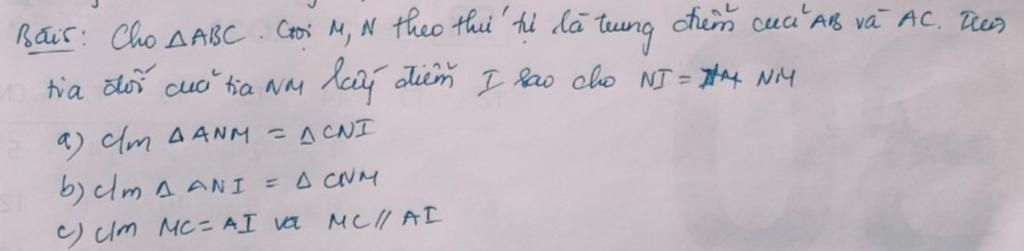 Bài 5: Cho △ABC. Gọi M, N theo thứ tự là trung điểm của AB và AC. Trên
tia đối của tia NM lấy điểm I sao cho NI = NM
a) c/m △ANM = △CNI
b) c/m △ANI = △CNM
c) c/m MC = AI và MC // AI